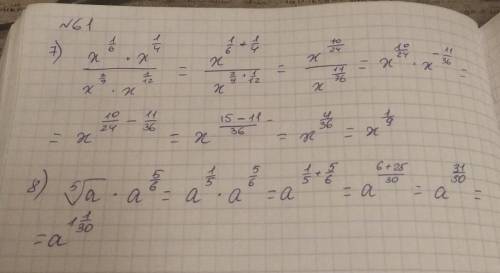 №61
7) x^(1/6) · x^(1/4) / x^(2/9) · x^(1/12) = x^(1/6 + 1/4) / x^(2/9 + 1/12) = x^(10/24) / x^(11/36) = x^(10/24) · x^(-11/36) =
= x^(10/24 - 11/36) = x^((15-11)/36) = x^(4/36) = x^(1/9)
8) ⁵√a · a^(5/6) = a^(1/5) · a^(5/6) = a^(1/5 + 5/6) = a^((6+25)/30) = a^(31/30) =
= a^(1 1/30)